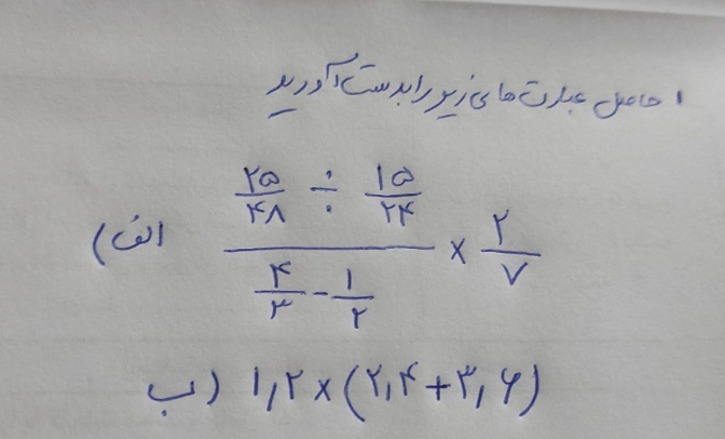 ۱ حاصل عبارت های زیر را بدست آورید
الف) ((۲۵/۴۸ ÷ ۱۵/۲۴) / (۴/۳ - ۱/۲)) × ۲/۷
ب) ۱,۲ × (۲,۴ + ۳,۶)